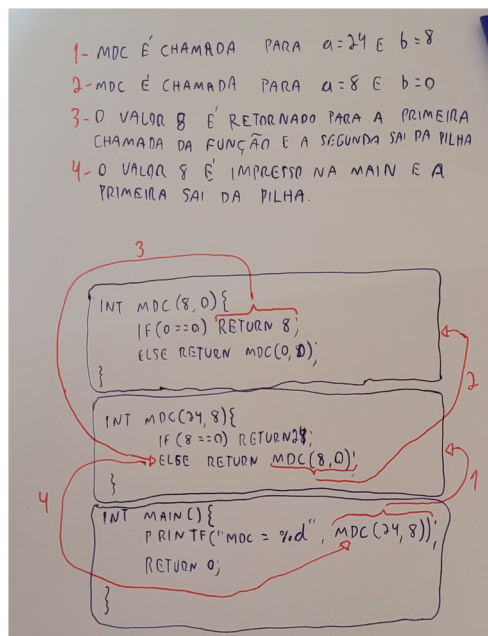 1- MDC É CHAMADA PARA a=24 E b=8
2- MDC É CHAMADA PARA a=8 E b=0
3- O VALOR 8 É RETORNADO PARA A PRIMEIRA
CHAMADA DA FUNÇÃO E A SEGUNDA SAI DA PILHA
4- O VALOR 8 É IMPRESSO NA MAIN E A
PRIMEIRA SAI DA PILHA.
3
INT MDC(8,0){
IF(0==0) RETURN 8;
ELSE RETURN MDC(0,0);
}
2
INT MDC(24,8){
IF(8==0) RETURN 24;
ELSE RETURN MDC(8,0);
}
1
4
INT MAIN(){
PRINTF("MDC = %d", MDC(24,8));
RETURN 0;
}